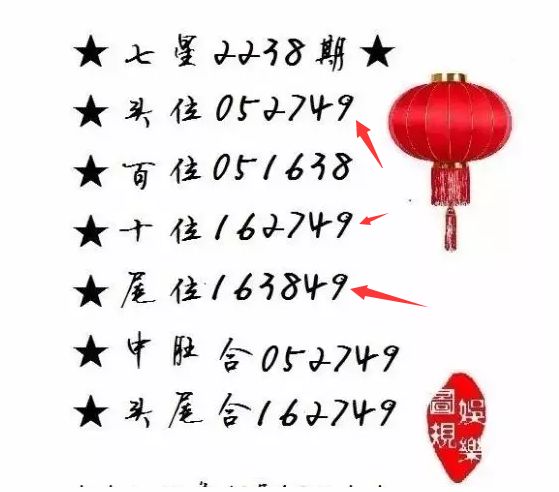 ★七星2238期★
★头位052749
★百位051638
★十位162749
★尾位163849
★中肚合052749
★头尾合162749
圖規
娱樂